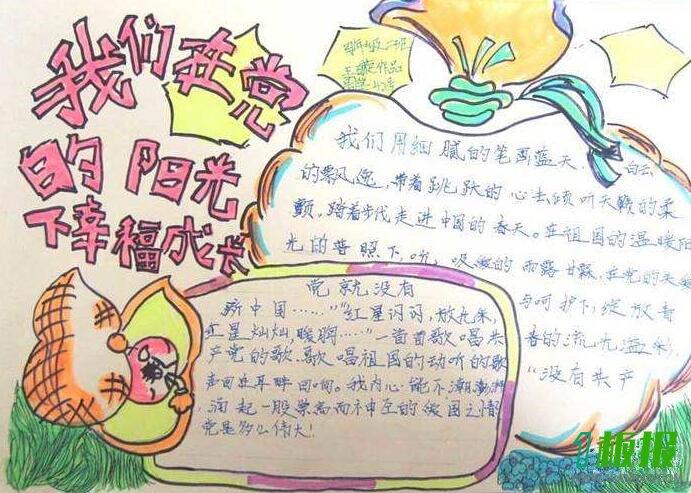 我们在党
的阳光
下幸福成长
四年级二班
作品
我们用细腻的笔画蓝天
白云
的飘逸,带着跳跃的心去倾听天籁的柔
颤,踏着步伐走进中国的春天。在祖国的温暖阳
光的普照下,听,吸
的雨露甘霖,在党的关
与呵护下,绽放青
春的流光溢彩,
“没有共产
党就没有
新中国……”“红星闪闪,放光来,
红星灿灿,暖胸……”一首首歌唱共
产党的歌,歌唱祖国的动听的歌
声回在耳畔回响。我内心能不潮澎湃
,涌起一股崇高而不由在的爱国之情
党是多么伟大!
板报